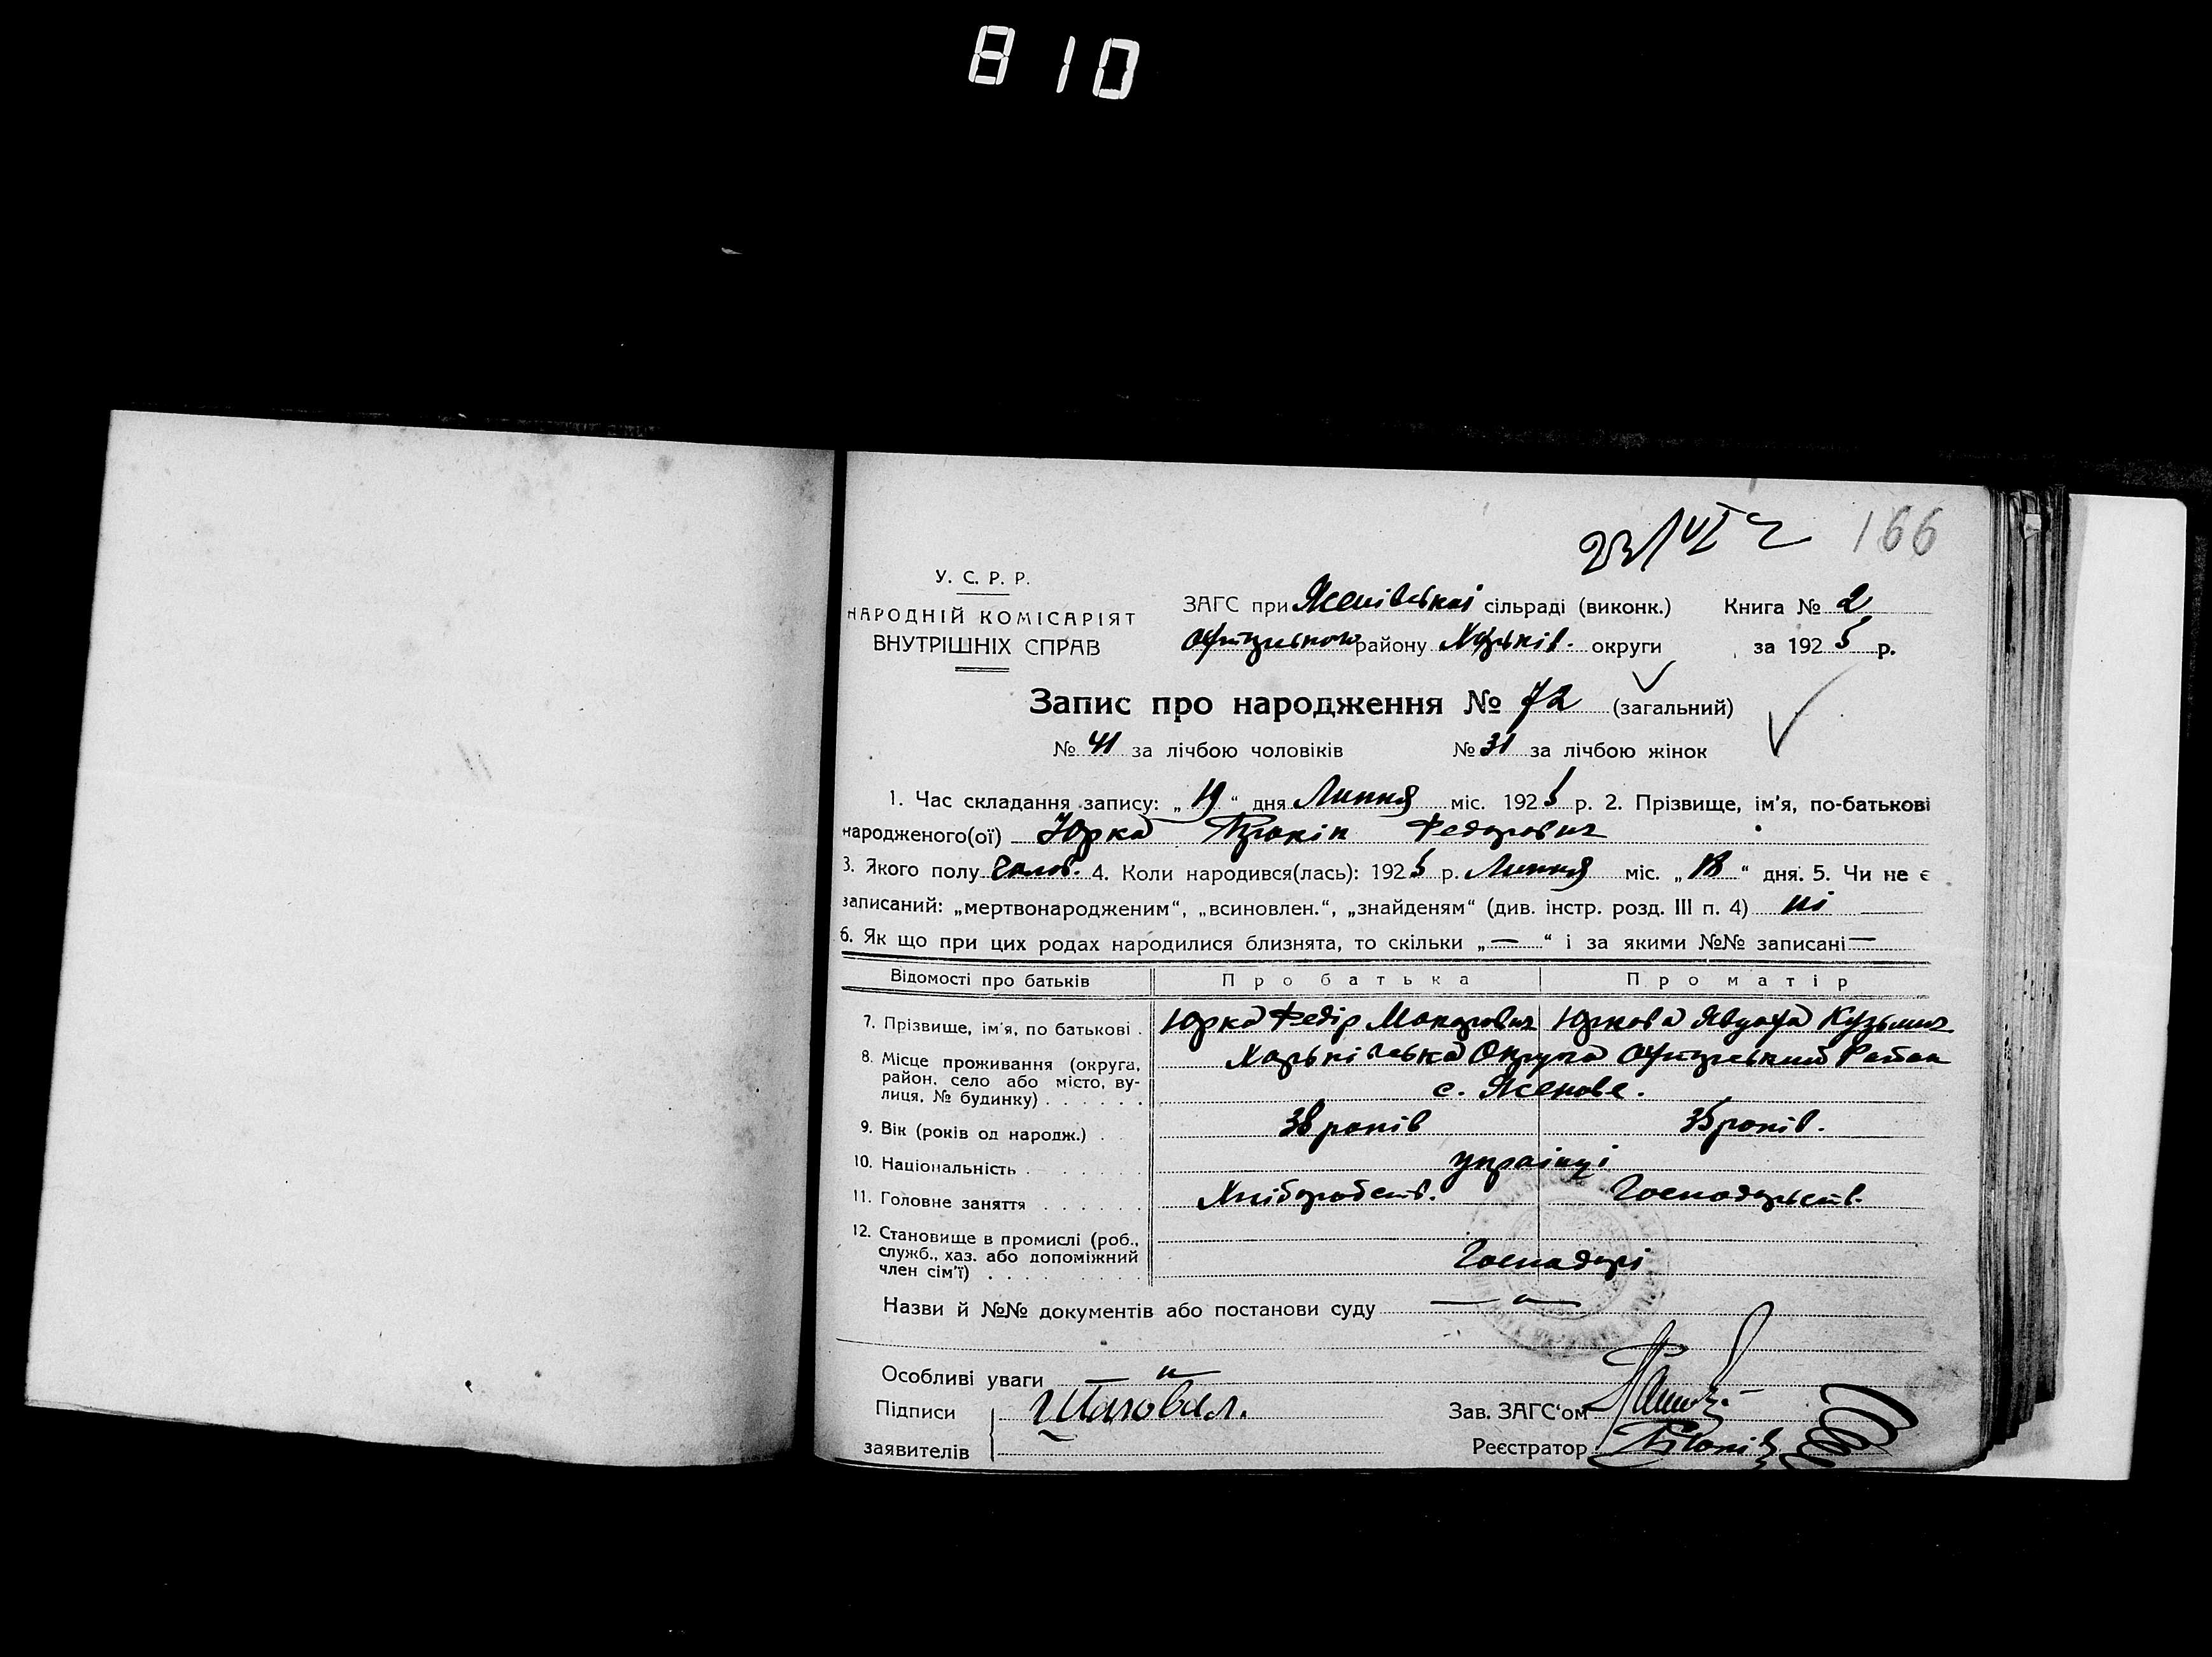 810
166
У. С. Р. Р.
НАРОДНІЙ КОМІСАРІЯТ
ВНУТРІШНІХ СПРАВ
ЗАГС при Ясенівській сільраді (виконк.) Книга № 2
району Харьків. округи за 1925 р.
Запис про народження № 72 (загальний)
№ 41 за лічбою чоловіків № 31 за лічбою жінок
1. Час складання запису: „19“ дня Липня міс. 1925 р. 2. Прізвище, ім'я, по-батькові
народженого(ої) Юрка Прокіп Федорович
3. Якого полу чолов. 4. Коли народився(лась): 1925 р. Липня міс. „18“ дня. 5. Чи не є
записаний: „мертвонародженим“, „всиновлен.“, „знайденям“ (див. інстр. розд. III п. 4) ні
6. Як що при цих родах народилися близнята, то скільки „—“ і за якими №№ записані —
Відомості про батьків Про батька Про матір
7. Прізвище, ім'я, по батькові . Юрка Федір Макарович Юркова Явдоха Кузьмин.
8. Місце проживання (округа, район, село або місто, вулиця, № будинку) . . . . . . Харьківська Округа Охтирський Район
с. Ясенове.
9. Вік (років од народж.) . 38 років 35 років.
10. Національність . українці
11. Головне заняття . . . . . . Хліборобств. Господарств.
12. Становище в промислі (роб., служб., хаз. або допоміжний член сім'ї) . . . . Господарі
Назви й №№ документів або постанови суду — „ —
Особливі уваги — „ —
Підписи Шаповал.
заявителів
Зав. ЗАГС'ом
Реєстратор